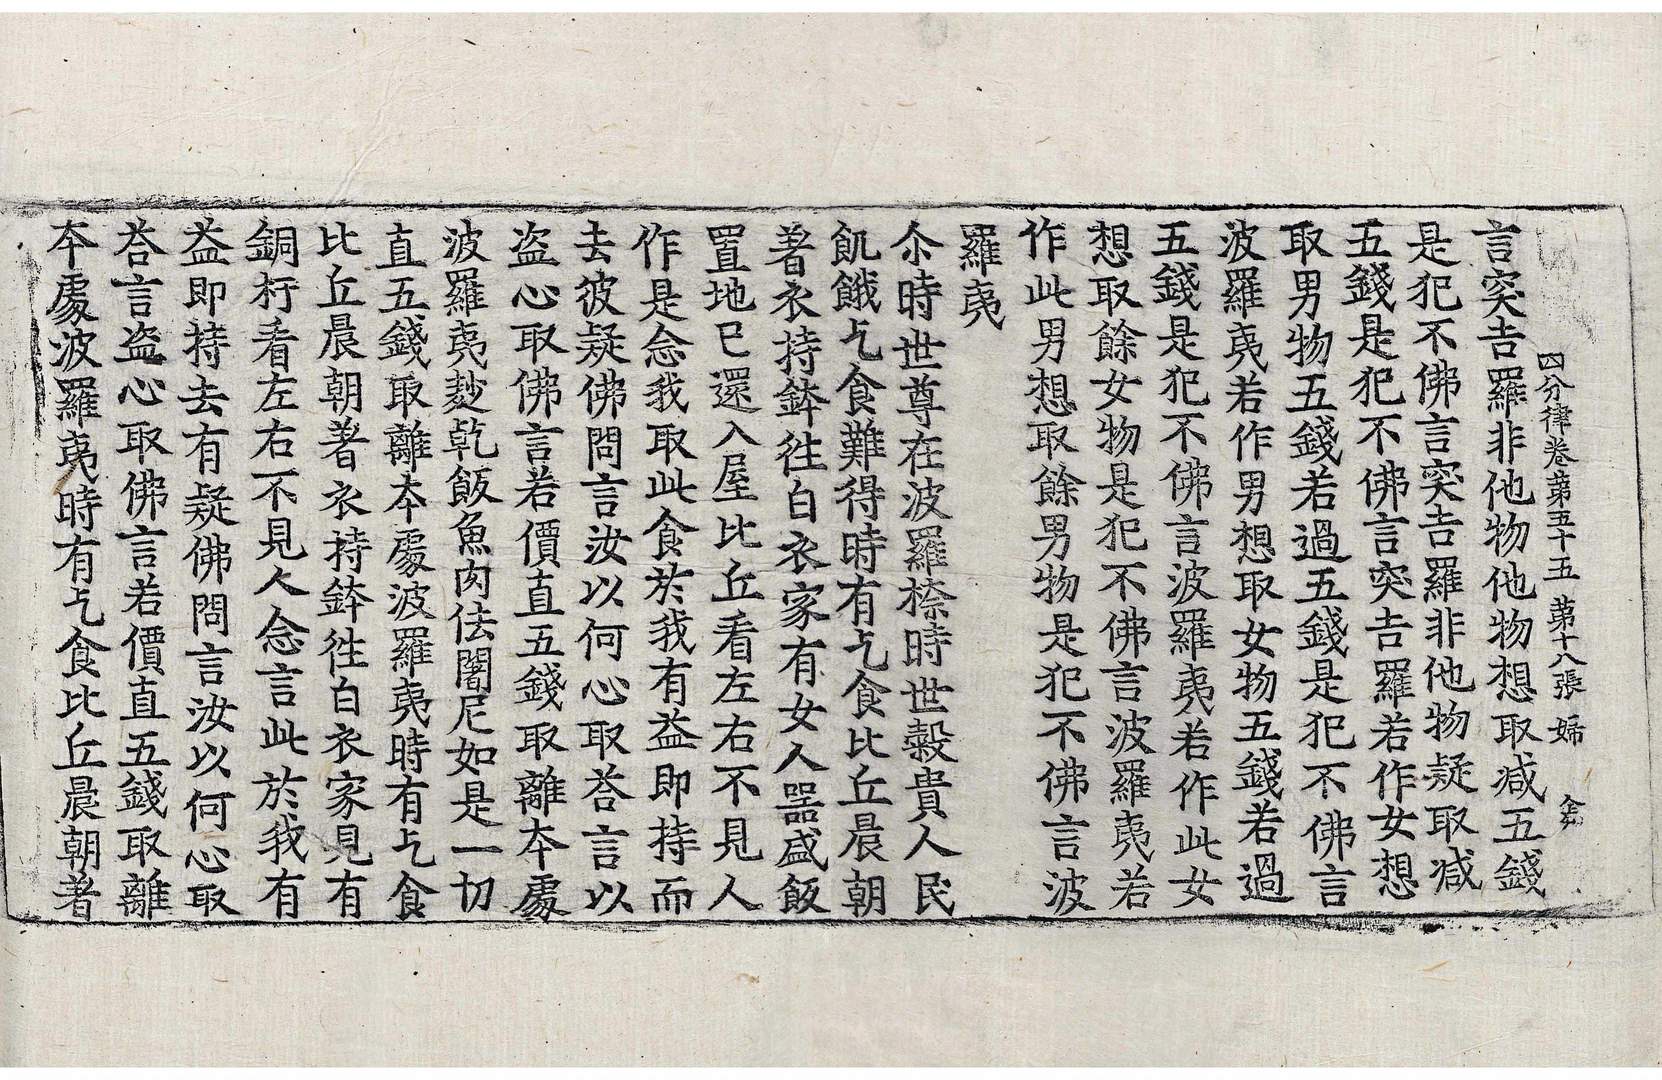 四分律卷第五十五 第十八張 婦
言突吉羅非他物他物想取減五錢
是犯不佛言突吉羅非他物疑取減
五錢是犯不佛言突吉羅若作女想
取男物五錢若過五錢是犯不佛言
波羅夷若作男想取女物五錢若過
五錢是犯不佛言波羅夷若作此女
想取餘女物是犯不佛言波羅夷若
作此男想取餘男物是犯不佛言波
羅夷
尒時世尊在波羅㮈時世穀貴人民
飢餓乞食難得時有乞食比丘晨朝
著衣持鉢徃白衣家有女人器盛飯
置地已還入屋比丘看左右不見人
作是念我取此食於我有益即持而
去彼疑佛問言汝以何心取荅言以
盗心取佛言若價直五錢取離本處
波羅夷麨乾飯魚肉佉闍尼如是一切
直五錢取離本處波羅夷時有乞食
比丘晨朝著衣持鉢徃白衣家見有
銅杅看左右不見人念言此於我有
益即持去有疑佛問言汝以何心取
荅言盗心取佛言若價直五錢取離
本處波羅夷時有乞食比丘晨朝著